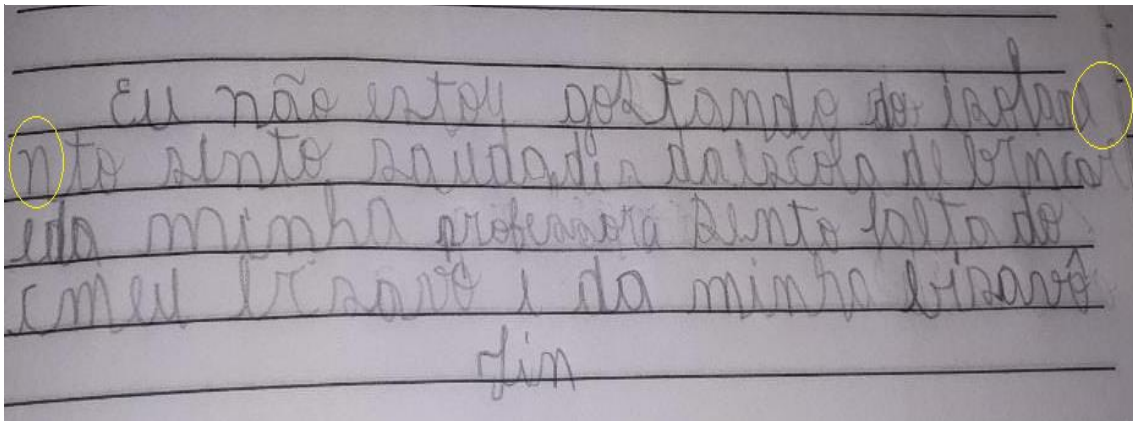 Eu não estoy gostando do isolame
nto sinto saudadis da escola de brincar
eda minha professora sinto falta do
meu bisavô i da minha bisavô
fin